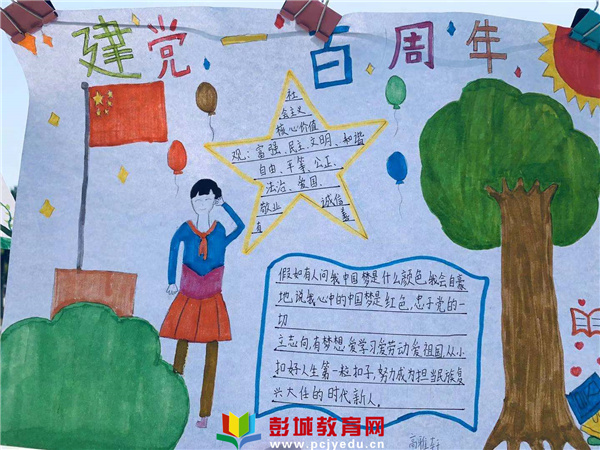 建党一百周年
社
会主义
核心价值
观：富强、民主、文明、和谐
自由、平等、公正、
法治、爱国、
敬业 诚信
友 善
假如有人问我中国梦是什么颜色,我会自豪
地,说我心中的中国梦是红色,忠于党的一
切
立志向,有梦想,爱学习爱劳动,爱祖国,从小
扣好人生第一粒扣子,努力成为担当民族复
兴大任的时代新人。
彭城教育网
www.pcjyedu.cn
高雅轩